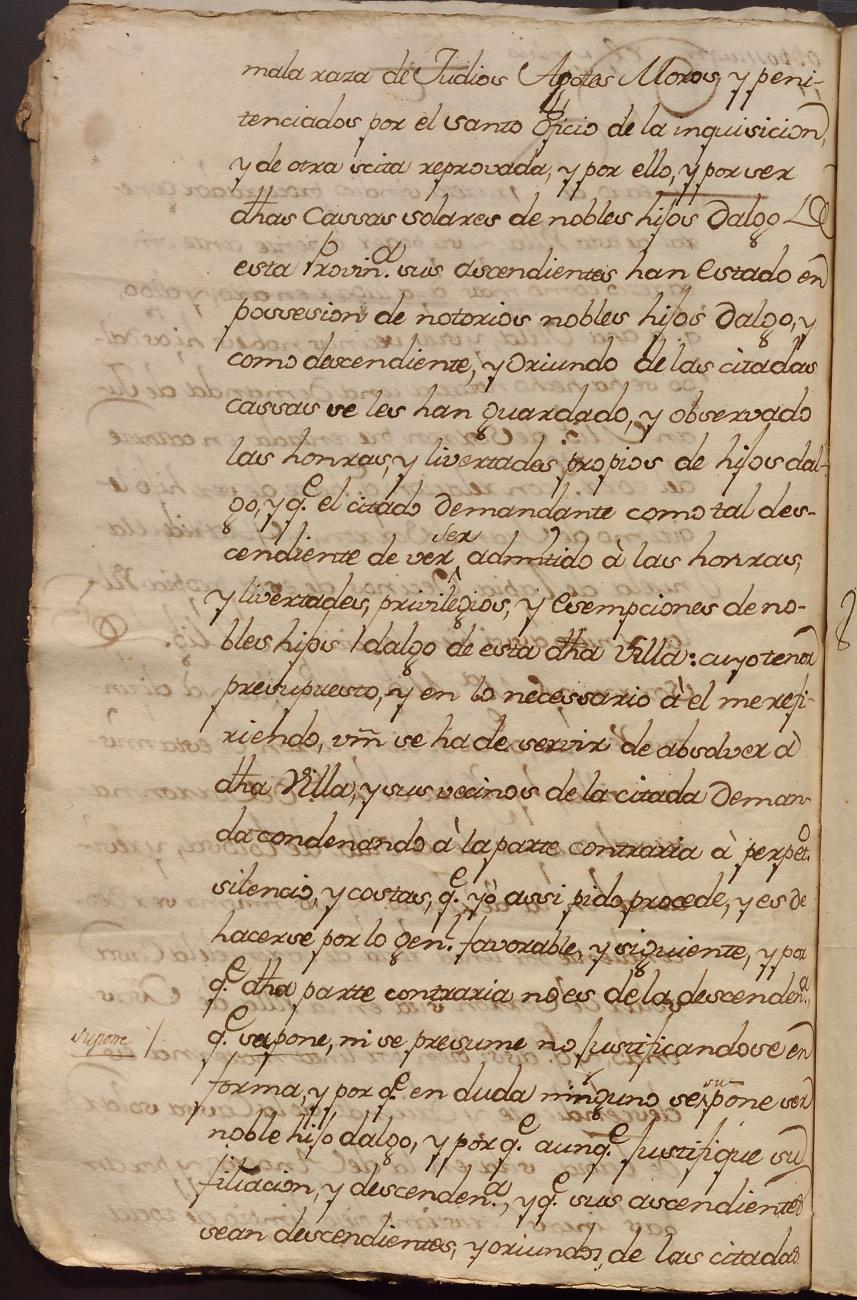 mala raza de Judios Agotes Moros, y peni-
tenciados por el santo oficio de la inquisicion,
y de otra scita reprovada, y por ello, y por ser
dhas Cassas solares de nobles hijos Dalgo De
esta Provin.ª sus ascendientes han Estado en
possesion de notorios nobles hijos Dalgo, y
como descendiente, y Oriundo de las citadas
cassas se les han guardado, y observado
las honras, y livertades propios de hijos dal-
go, y q.e el citado Demandante como tal des-
cendiente de ver ser admitido à las honras,
y livertades, privilegios, y Esempciones de no-
bles hijos dalgo de esta dha Villa: cuyo tenor
presupuesto, y en lo necessario à el me refi-
riendo, vm̃ se ha de servir de absolver à
dha Villa, y sus vecinos de la citada Deman-
da condenando à la parte contraria à perpet.o
silencio, y costas, q.e yò assi pido procede, y es de
hacerse por lo gen.l favorable, y siguiente, y por
q.e dha parte contraria no es de la descenden.ª
q.e sepone, ni se presume no Justificandose en
supone /
forma, y por q.e en duda ninguno se supone ser
noble hijo dalgo, y por q.e aunq.e Justifique su
filiacion, y descenden.ª, y q.e sus ascendientes
sean descendientes, y oriundos, de las citadas